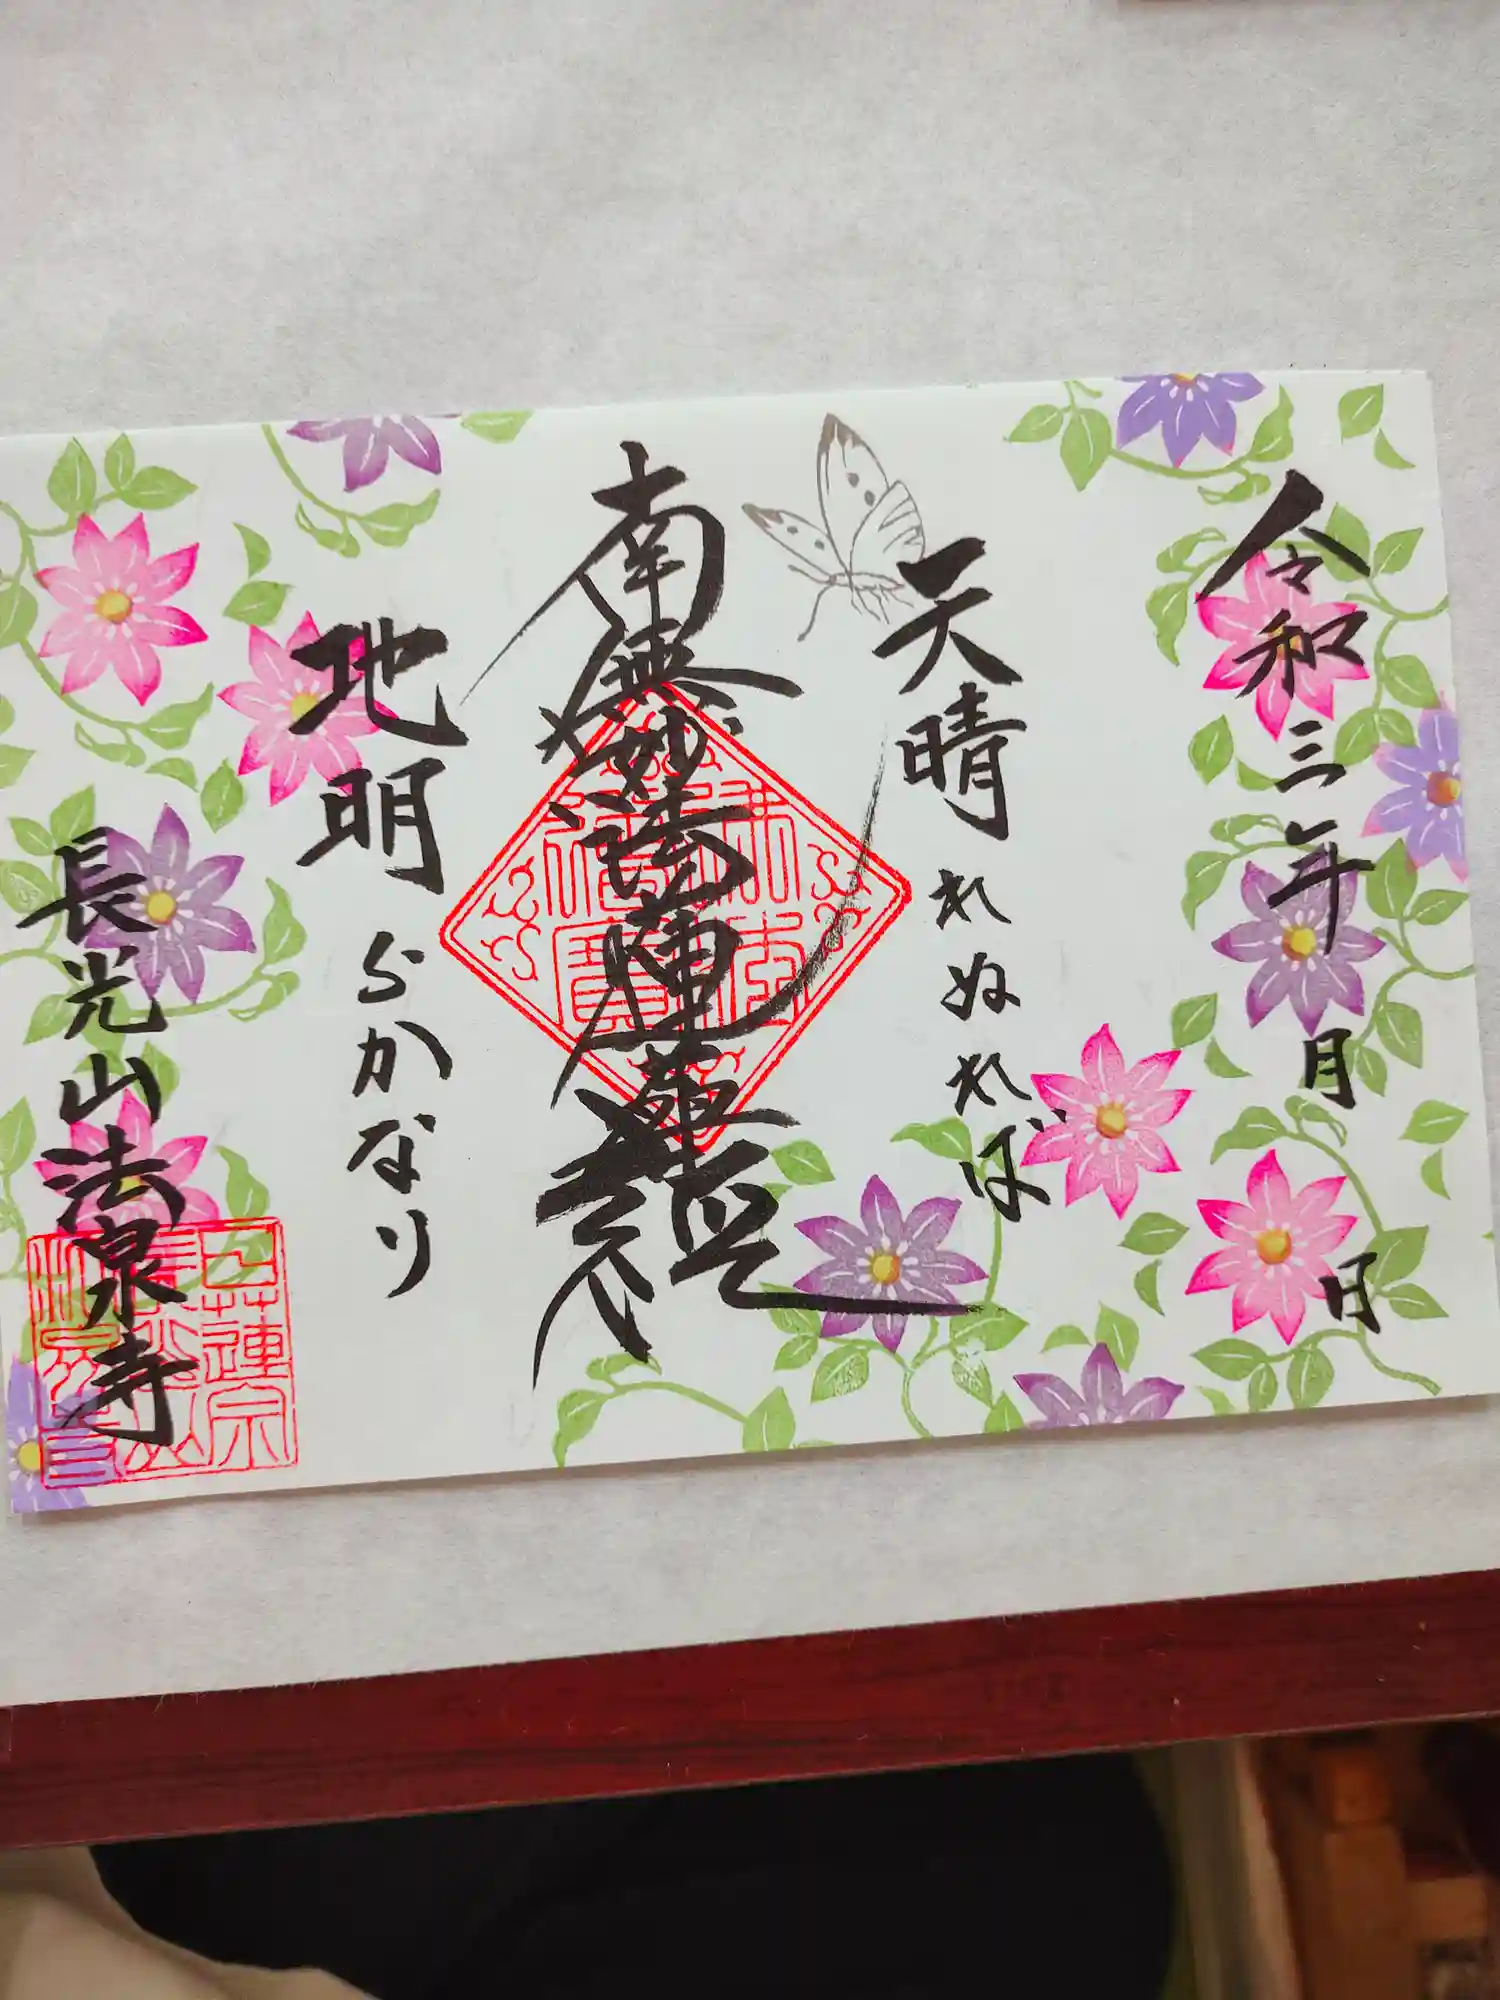 令和三年 月 日
天晴れぬれば
南無妙法蓮華経
地明らかなり
長光山法泉寺
日蓮宗